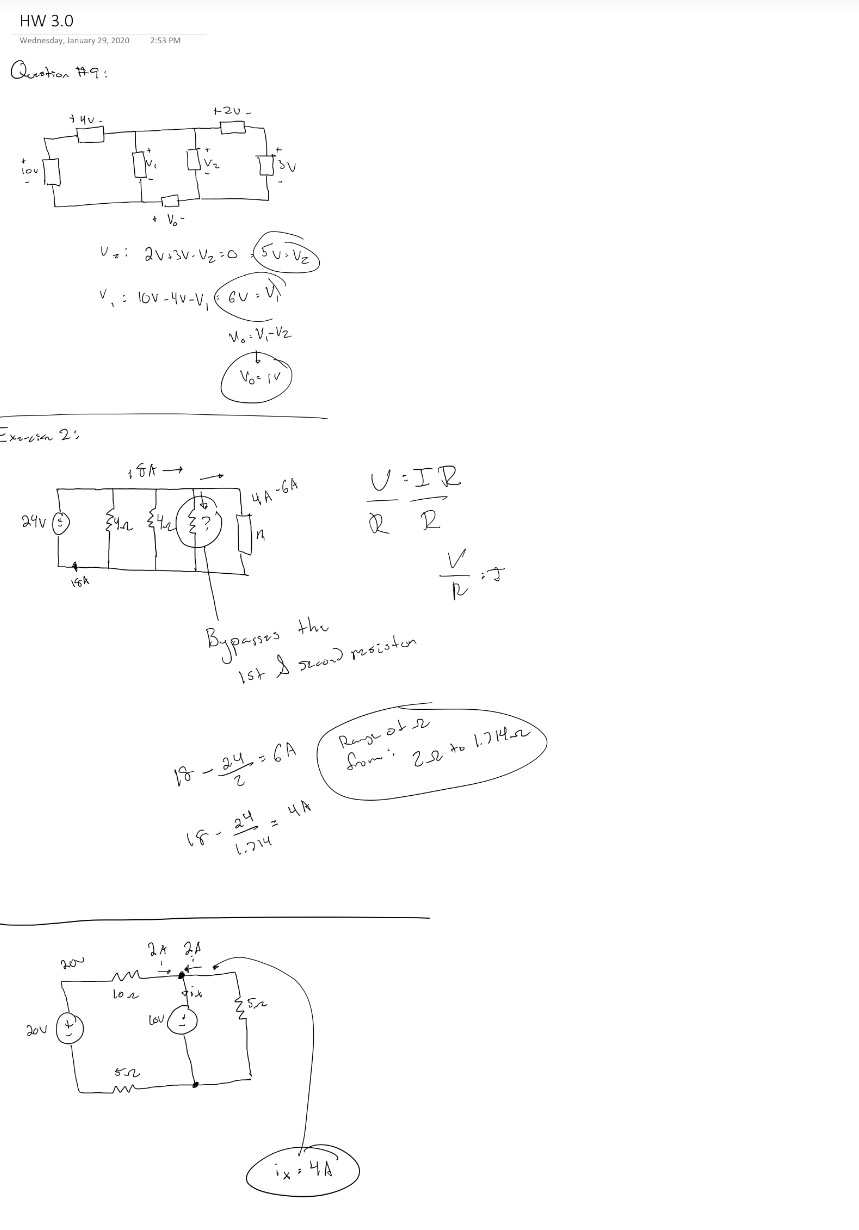 HW 3.0
Wednesday, January 29, 2020 2:53 PM
Question #9:
+ 4V -
+ 2V -
+
10V
-
+
V₁
-
+
V₂
-
+
3V
-
+ V₀ -
V₂: 2V+3V-V₂=0 5V=V₂
V₁: 10V-4V-V₁ = 6V=V₁
V₀=V₁-V₂
V₀=1V
Exercise 2:
18A →
4A-6A
24V
4Ω
4Ω
?
R
18A
V=IR
R R
V/R=I
Bypasses the
1st & second resistor
18 - 24/2 = 6A
18 - 24/1.714 = 4A
Range of Ω
from: 2Ω to 1.714Ω
2A 2A
20V
10Ω
ix
20V
10V
5Ω
5Ω
ix=4A